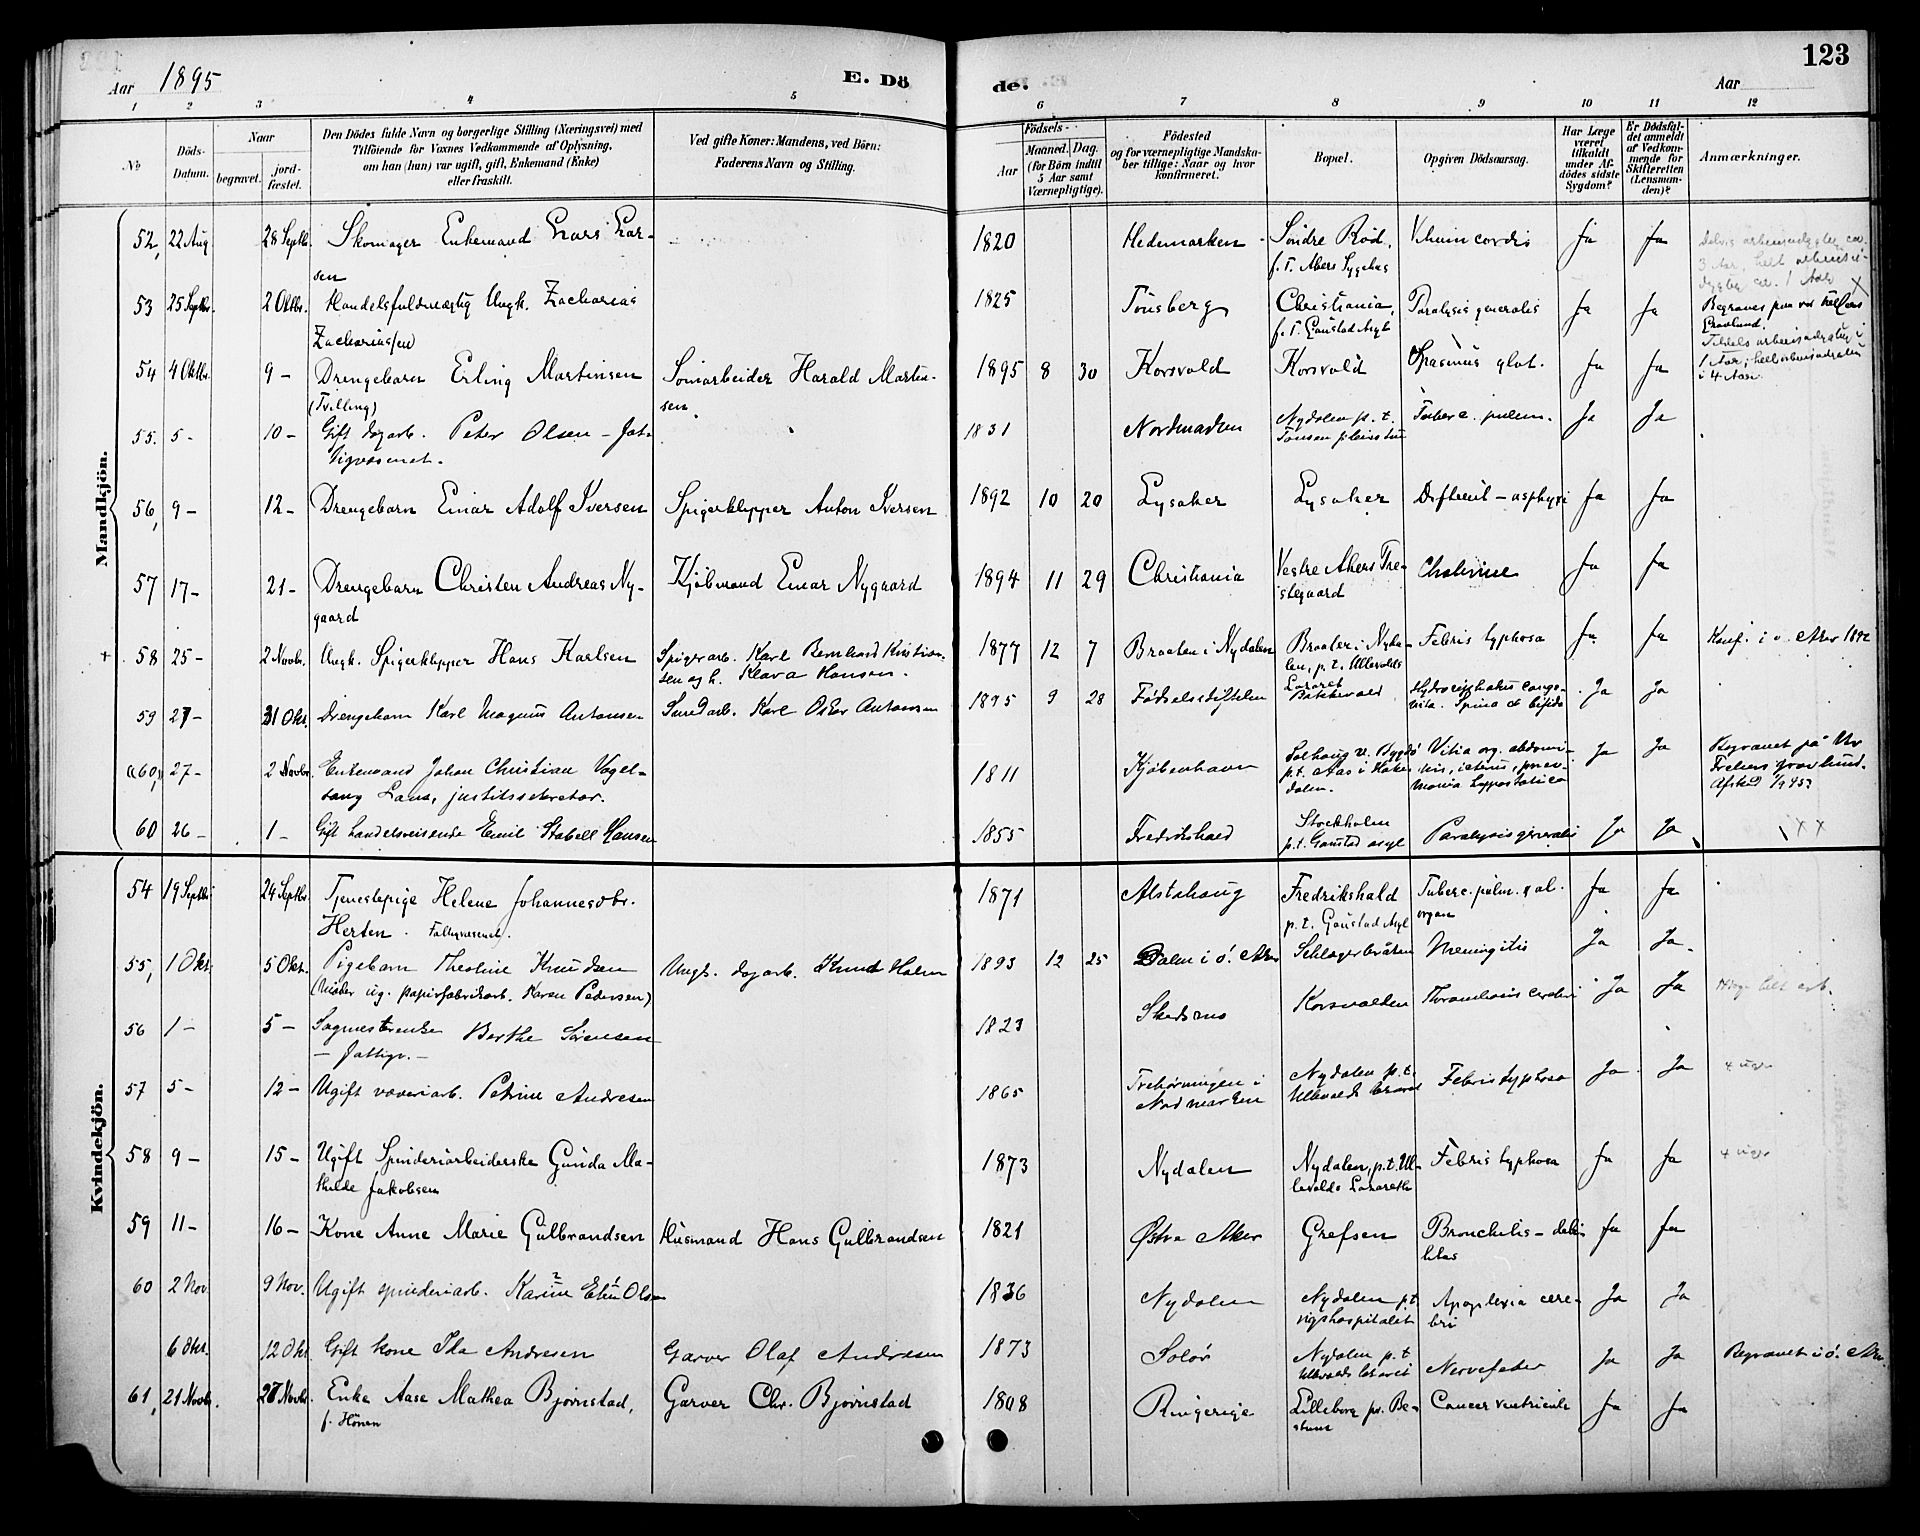 123
Aar 1895
E. Dö
de.
Aar
1 2 3 4 5 6 7 8 9 10 11 12
No
Döds-
Datum.
Naar
begravet.
jord-
fæstet.
Den Dödes fulde Navn og borgerlige Stilling (Næringsvei) med
Tilföiende for Voxnes Vedkommende af Oplysning,
om han (hun) var ugift, gift, Enkemand (Enke)
eller fraskilt.
Ved gifte Koner: Mandens, ved Börn:
Faderens Navn og Stilling.
Födsels-
Aar
Maaned. Dag.
(for Börn indtil
5 Aar samt
Værnepligtige).
Födested
og for værnepligtige Mandska-
ber tillige: Naar og hvor
konfirmeret.
Bopæl.
Opgiven Dödsaarsag.
Har Læge
været
tilkaldt
under Af-
dödes sidste
Sygdom?
Er Dödsfal-
det anmeldt
af Vedkom-
mende for
Skifteretten
(Lensman-
den)?
Anmærkninger.
Mandkjön.
52, 22 Aug 28 Septbr. Skomager Enkemand Lars Lar-
sen
1820 Hedemarken Söndre Röd, Vitium cordis Ja Ja
f. T. Akers Sygehus
53 25 Septbr. 2 Oktbr. Handelsfuldmægtig Ungk. Zacharias
Zachariassen
1825 Tönsberg Christiania, Paralysis generalis Ja Ja
f. T. Gaustad Asyl
Begraves paa vor Frelsers
Gravlund.
54 4 Oktbr. 9 - Drengebarn Erling Martinsen Tomtarbeider Harald Martin-
(Tvilling) sen.
1895 8 30 Korsvold Korsvold Spasmus glot. Ja Ja
1 Aar, helt arbeidsudygtig
i 4 Aar.
55. 5 - 10 - Gift dagarb. Peter Olsen - Fat-
tigvæsenet.
1831 Nordmarken Nydalen p. t. Taarnsen pleiestue Tuberc. pulm. Ja Ja
56, 9 - 12 - Drengebarn Einar Adolf Iversen Spigerklipper Anton Iversen
1892 10 20 Lysaker Lysaker Difterit - asphyxi Ja Ja
57 17 - 21 - Drengebarn Christen Andreas Ny-
gaard
Kjöbmand Einar Nygaard
1894 11 29 Christiania Vestre Akers Præ-
stegaard
Cholerine Ja Ja
+ 58 25 - 2 Novbr. Ungk. Spigerklipper Hans Karlsen Spigerarb. Karl Bernhard Kristian-
sen og h. Klara Hansen.
1877 12 7 Braaten i Nydalen Braaten i Nyda-
len, p. t. Ullevolds
Lazaret
Febris typhosa Ja Ja Konf. i v. Aker 1892
59 27 - 31 Okt. Drengebarn Karl Magnus Antonsen Smedarb. Karl Oskar Antonsen
1895 9 28 Födselsstiftelsen Bakkevold Hydrocephalus conge-
nita. Spina bifida Ja Ja
(60, 27 - 2 Novbr. Enkemand Johan Christian Vogel-
sang Lans, justitssekretær.
1811 Kjöbenhavn Solhaug v. Bygdö
p. t. Aas i Hake-
dalen.
Vitia org. abdomi-
nis, icterus, pneu-
monia hypostatica
Ja Ja Begravet på Vor
Frelsers gravlund.
60 26 - 1 - Gift handelsreisende Emil Stabell Hansen
1855 Fredrikshald Stockholm
p. t. Gaustad asyl
Paralysis generalis Ja Ja xx
Kvindekjön.
54 19 Septbr 24 Septbr. Tjenestepige Helene Johannesdtr.
Herten. Fattigvæsenet.
1871 Alstahaug Fredrikshald
p. t. Gaustad Asyl
Tuberc. pulm. & al.
organ Ja Ja
55, 1 Okt. 5 Okt. Pigebarn Theoline Knudsen
(Moder ug. papirfabrikarb. Karen Pedersen)
Ungk. dagarb. Knud Holm
1893 12 25 Dalen i ö. Aker Schlagerbråten Meningitis Ja Ja
56 1 - 5 - Sagmesterenke Berthe Sörensen
- Fattigv. -
1823 Skedsmo Korsvolden Thrombosis cerebri Ja Ja
57 5 - 12 - Ugift væveriarb. Petrine Andresen
1865 Trehörningen i
Nordmarken
Nydalen p. t.
Ullevolds lazaret
Febris typhosa Ja Ja 4 uger
58 9 - 15 - Ugift Spinderiarbeiderske Gunda Ma-
thilde Jakobsen
1873 Nydalen Nydalen, p. t. Ul-
levolds Lazareth
Febris typhosa Ja Ja 4 uger
59 11 - 16 - Kone Anne Marie Gulbrandsen Husmand Hans Gulbrandsen
1821 Østre Aker Grefsen Bronchitis - debi-
litas Ja Ja
60 2 Nov 9 Nov. Ugift spinderiarb. Karine Elin Olsen
1836 Nydalen Nydalen p. t.
rigshospitalet
Apoplexia cere-
bri Ja Ja
6 Okt. 12 Okt Gift kone Ida Andresen Garver Olaf Andresen
1873 Solör Nydalen p. t
Ullevolds lazaret
Nervefeber Ja Ja Begravet i ö. Aker
61, 21 Novbr. 27 Novbr. Enke Aase Mathea Bjørnstad,
f. Hönen
Garver Chr. Bjørnstad
1808 Ringerige Lilleborg pr. Be-
stum
Cancer ventriculi Ja Ja